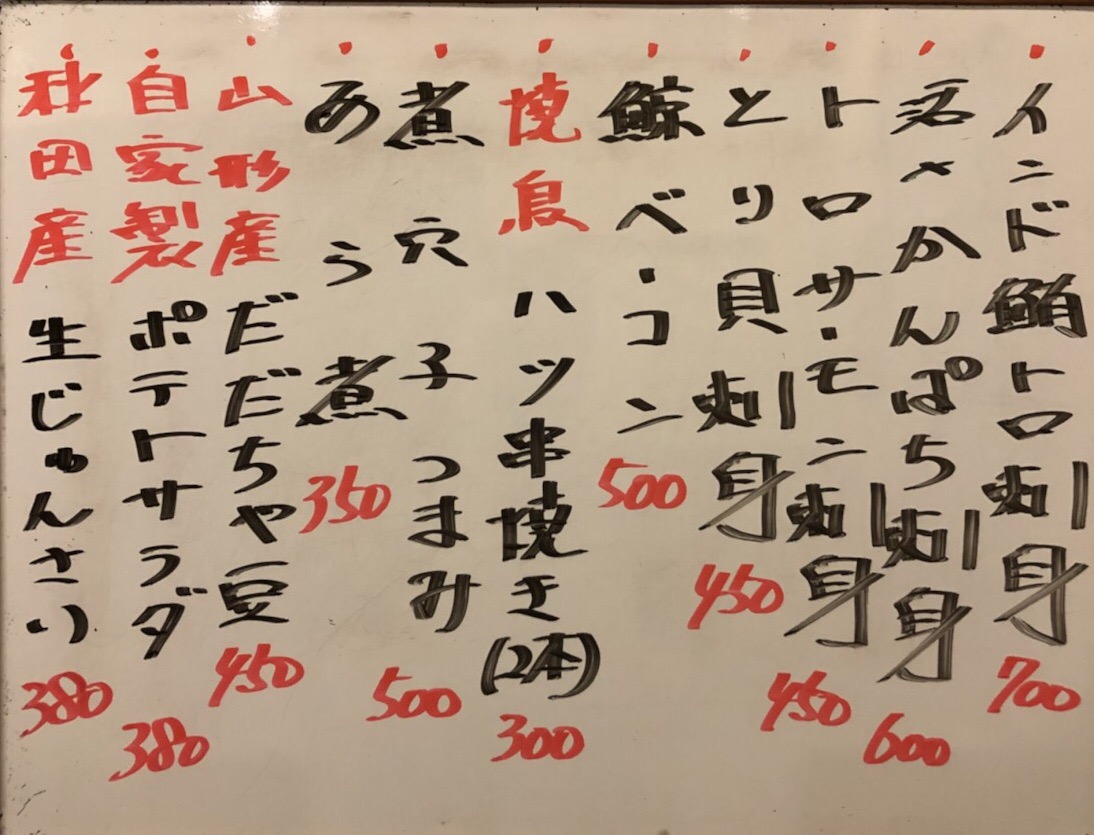 ・インド鮪トロ刺身 700
・活〆かんぱち刺身 600
・トロサーモン刺身 450
・とり貝刺身 450
・鯨ベーコン 500
・焼鳥 ハツ串焼き(2本) 300
・煮穴子つまみ 500
・あら煮 350
・山形産 だだちゃ豆 450
・自家製 ポテトサラダ 380
・秋田産 生じゅんさい 380